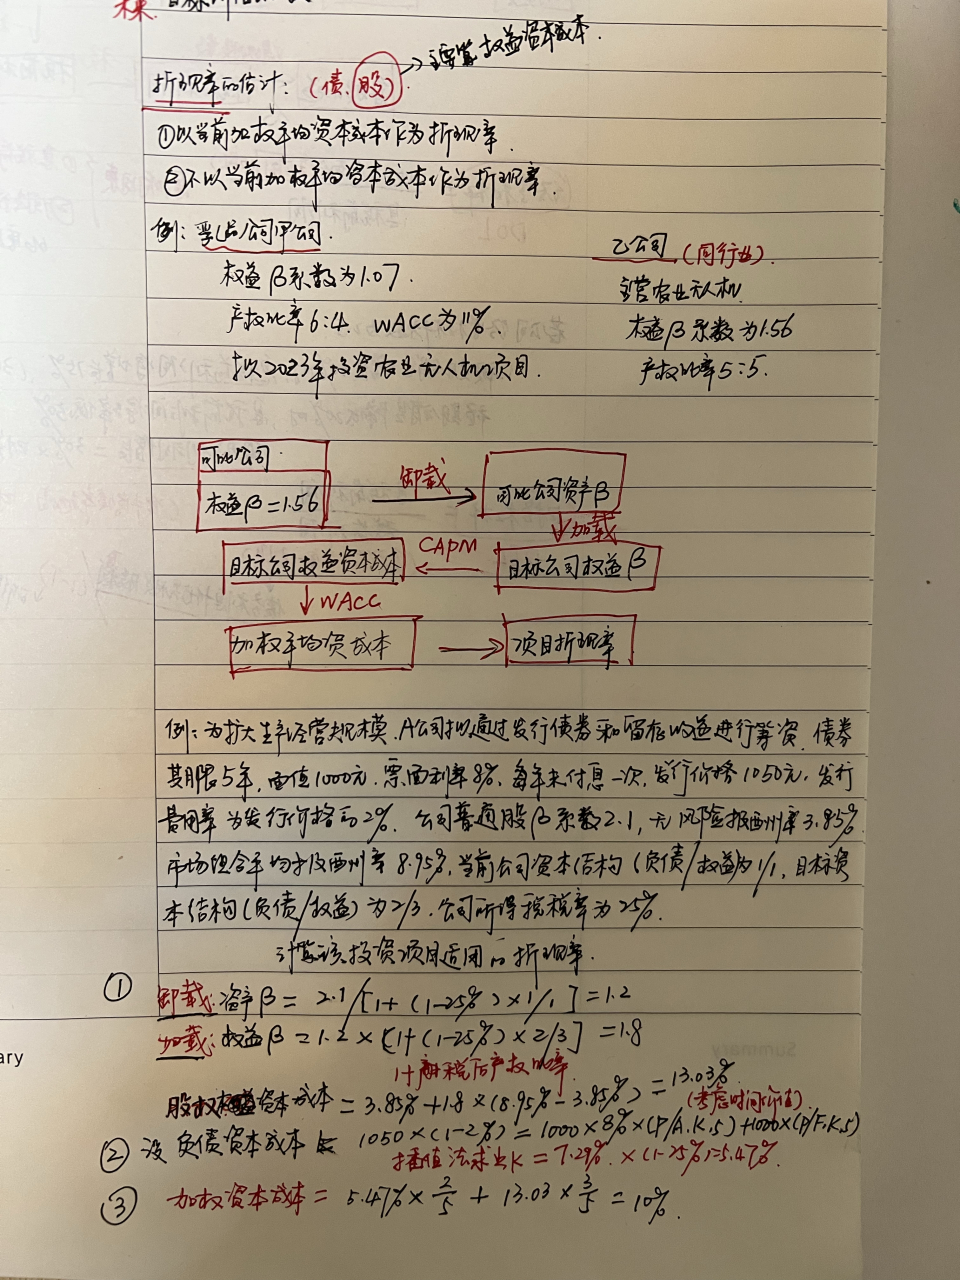 主要算权益资本成本.
折现率的估计: (债、股)
①以当前加权平均资本成本作为折现率.
②不以当前加权平均资本成本作为折现率.
例: 乳品公司甲公司.
乙公司 (同行业).
权益β系数为1.07.
主营农业无人机
产权比率6:4. WACC为11%.
权益β系数为1.56
拟以2023年投资农业无人机项目.
产权比率5:5.
可比公司
权益β=1.56
卸载
可比公司资产β
加载
目标公司权益资本成本
CAPM
目标公司权益β
WACC
加权平均资本成本
项目折现率
例: 为扩大生产经营规模. A公司拟通过发行债券和留存收益进行筹资. 债券
期限5年, 面值1000元. 票面利率8%. 每年末付息一次, 发行价格1050元, 发行
费用率为发行价格的2%. 公司普通股β系数2.1, 无风险报酬率3.85%.
市场组合平均报酬率8.95%, 当前公司资本结构(负债/权益)为1/1, 目标资
本结构(负债/权益)为2/3. 公司所得税税率为25%.
计算该投资项目适用的折现率.
① 卸载: 资产β = 2.1/[1+(1-25%)×1/1] = 1.2
加载: 权益β = 1.2×[1+(1-25%)×2/3] = 1.8
计算税后产权比率.
股权资本成本 = 3.85%+1.8×(8.95%-3.85%) = 13.03%
(考虑时间价值)
② 设负债资本成本K 1050×(1-2%) = 1000×8%×(P/A.K.5)+1000×(P/F.K.5)
插值法求出K = 7.29%. ×(1-25%)=5.47%.
③ 加权资本成本 = 5.47%×2/5 + 13.03×3/5 = 10%.
ary